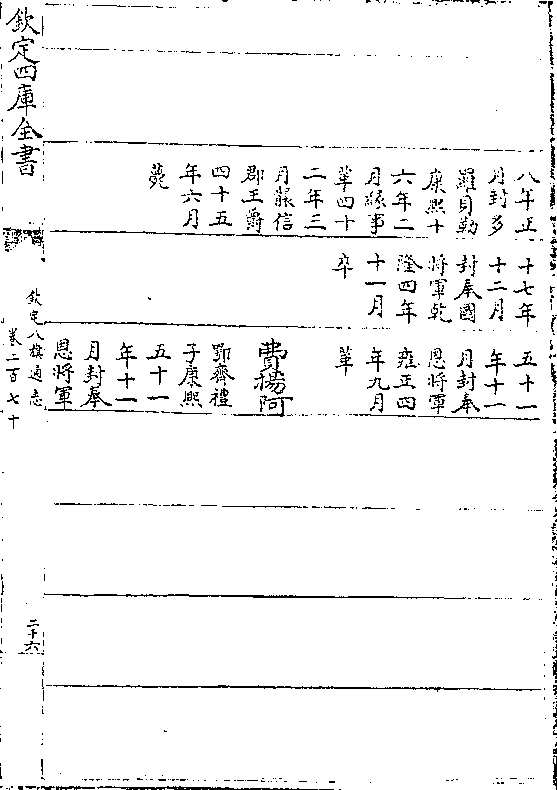 八年正
月封多
羅貝勒
康熙十
六年二
月緣事
革四十
二年三
月襲信
郡王爵
四十五
年六月
薨
十七年
十二月
封奉國
將軍乾
隆四年
十一月
卒
五十一
年十一
月封奉
恩將軍
雍正四
年九月
革
費揚阿
鄂齋禮
子康熙
五十一
年十一
月封奉
恩將軍
欽定四庫全書
欽定八旗通志
卷二百七十
二十六